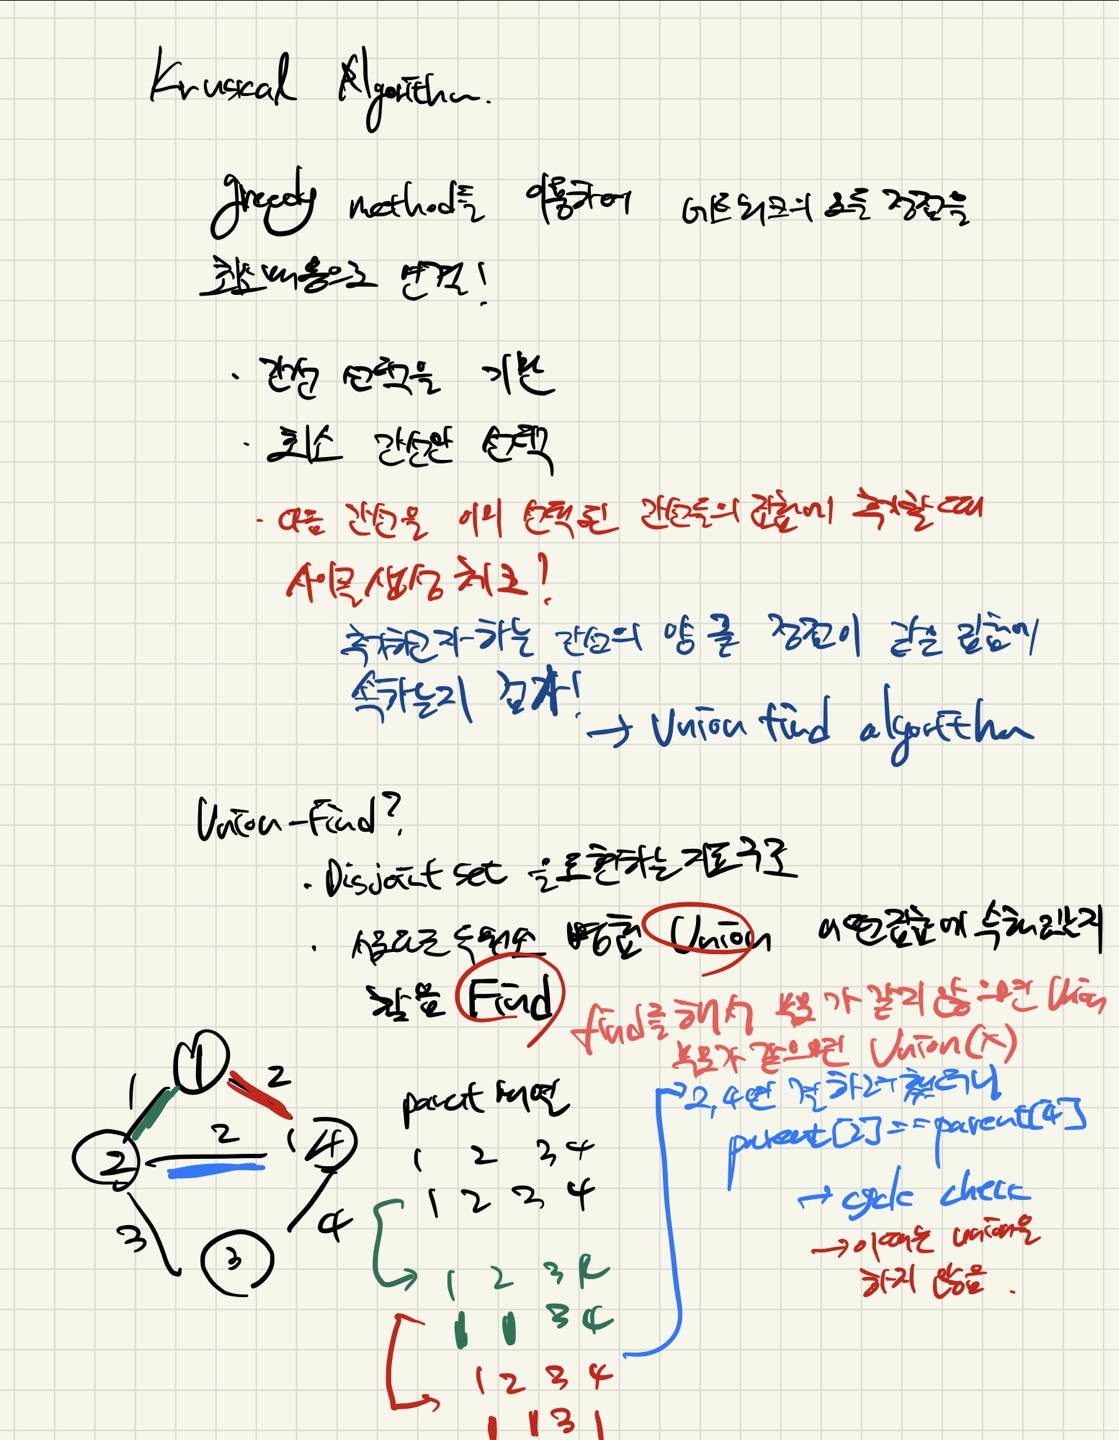 Kruskal Algorithm.
greedy method를 이용하여 네트워크의 모든 정점을
최소비용으로 연결!
· 간선 선택을 기반
· 최소 간선만 선택
· 다음 간선을 이미 선택된 간선들의 집합에 추가할 때
사이클 생성 체크!
추가하고자 하는 간선의 양 끝 정점이 같은 집합에
속하는지 검사!
→ Union find algorithm
Union-Find?
· Disjoint set 을 표현하는 자료구조
· 병합 Union 어떤 집합에 속해있는지
찾음 Find
find를 해서 부모가 같지 않으면 Union
부모가 같으면 Union(X)
1 1 2
2 2 1 4
3 3 4
parent 배열
1 2 3 4
1 2 3 4
1 2 3 4
1 1 3 4
1 2 3 4
1 1 3 1
2,4 연결 하려 했더니
parent[2]==parent[4]
→ cycle check
→ 이때는 union을
하지 않음.